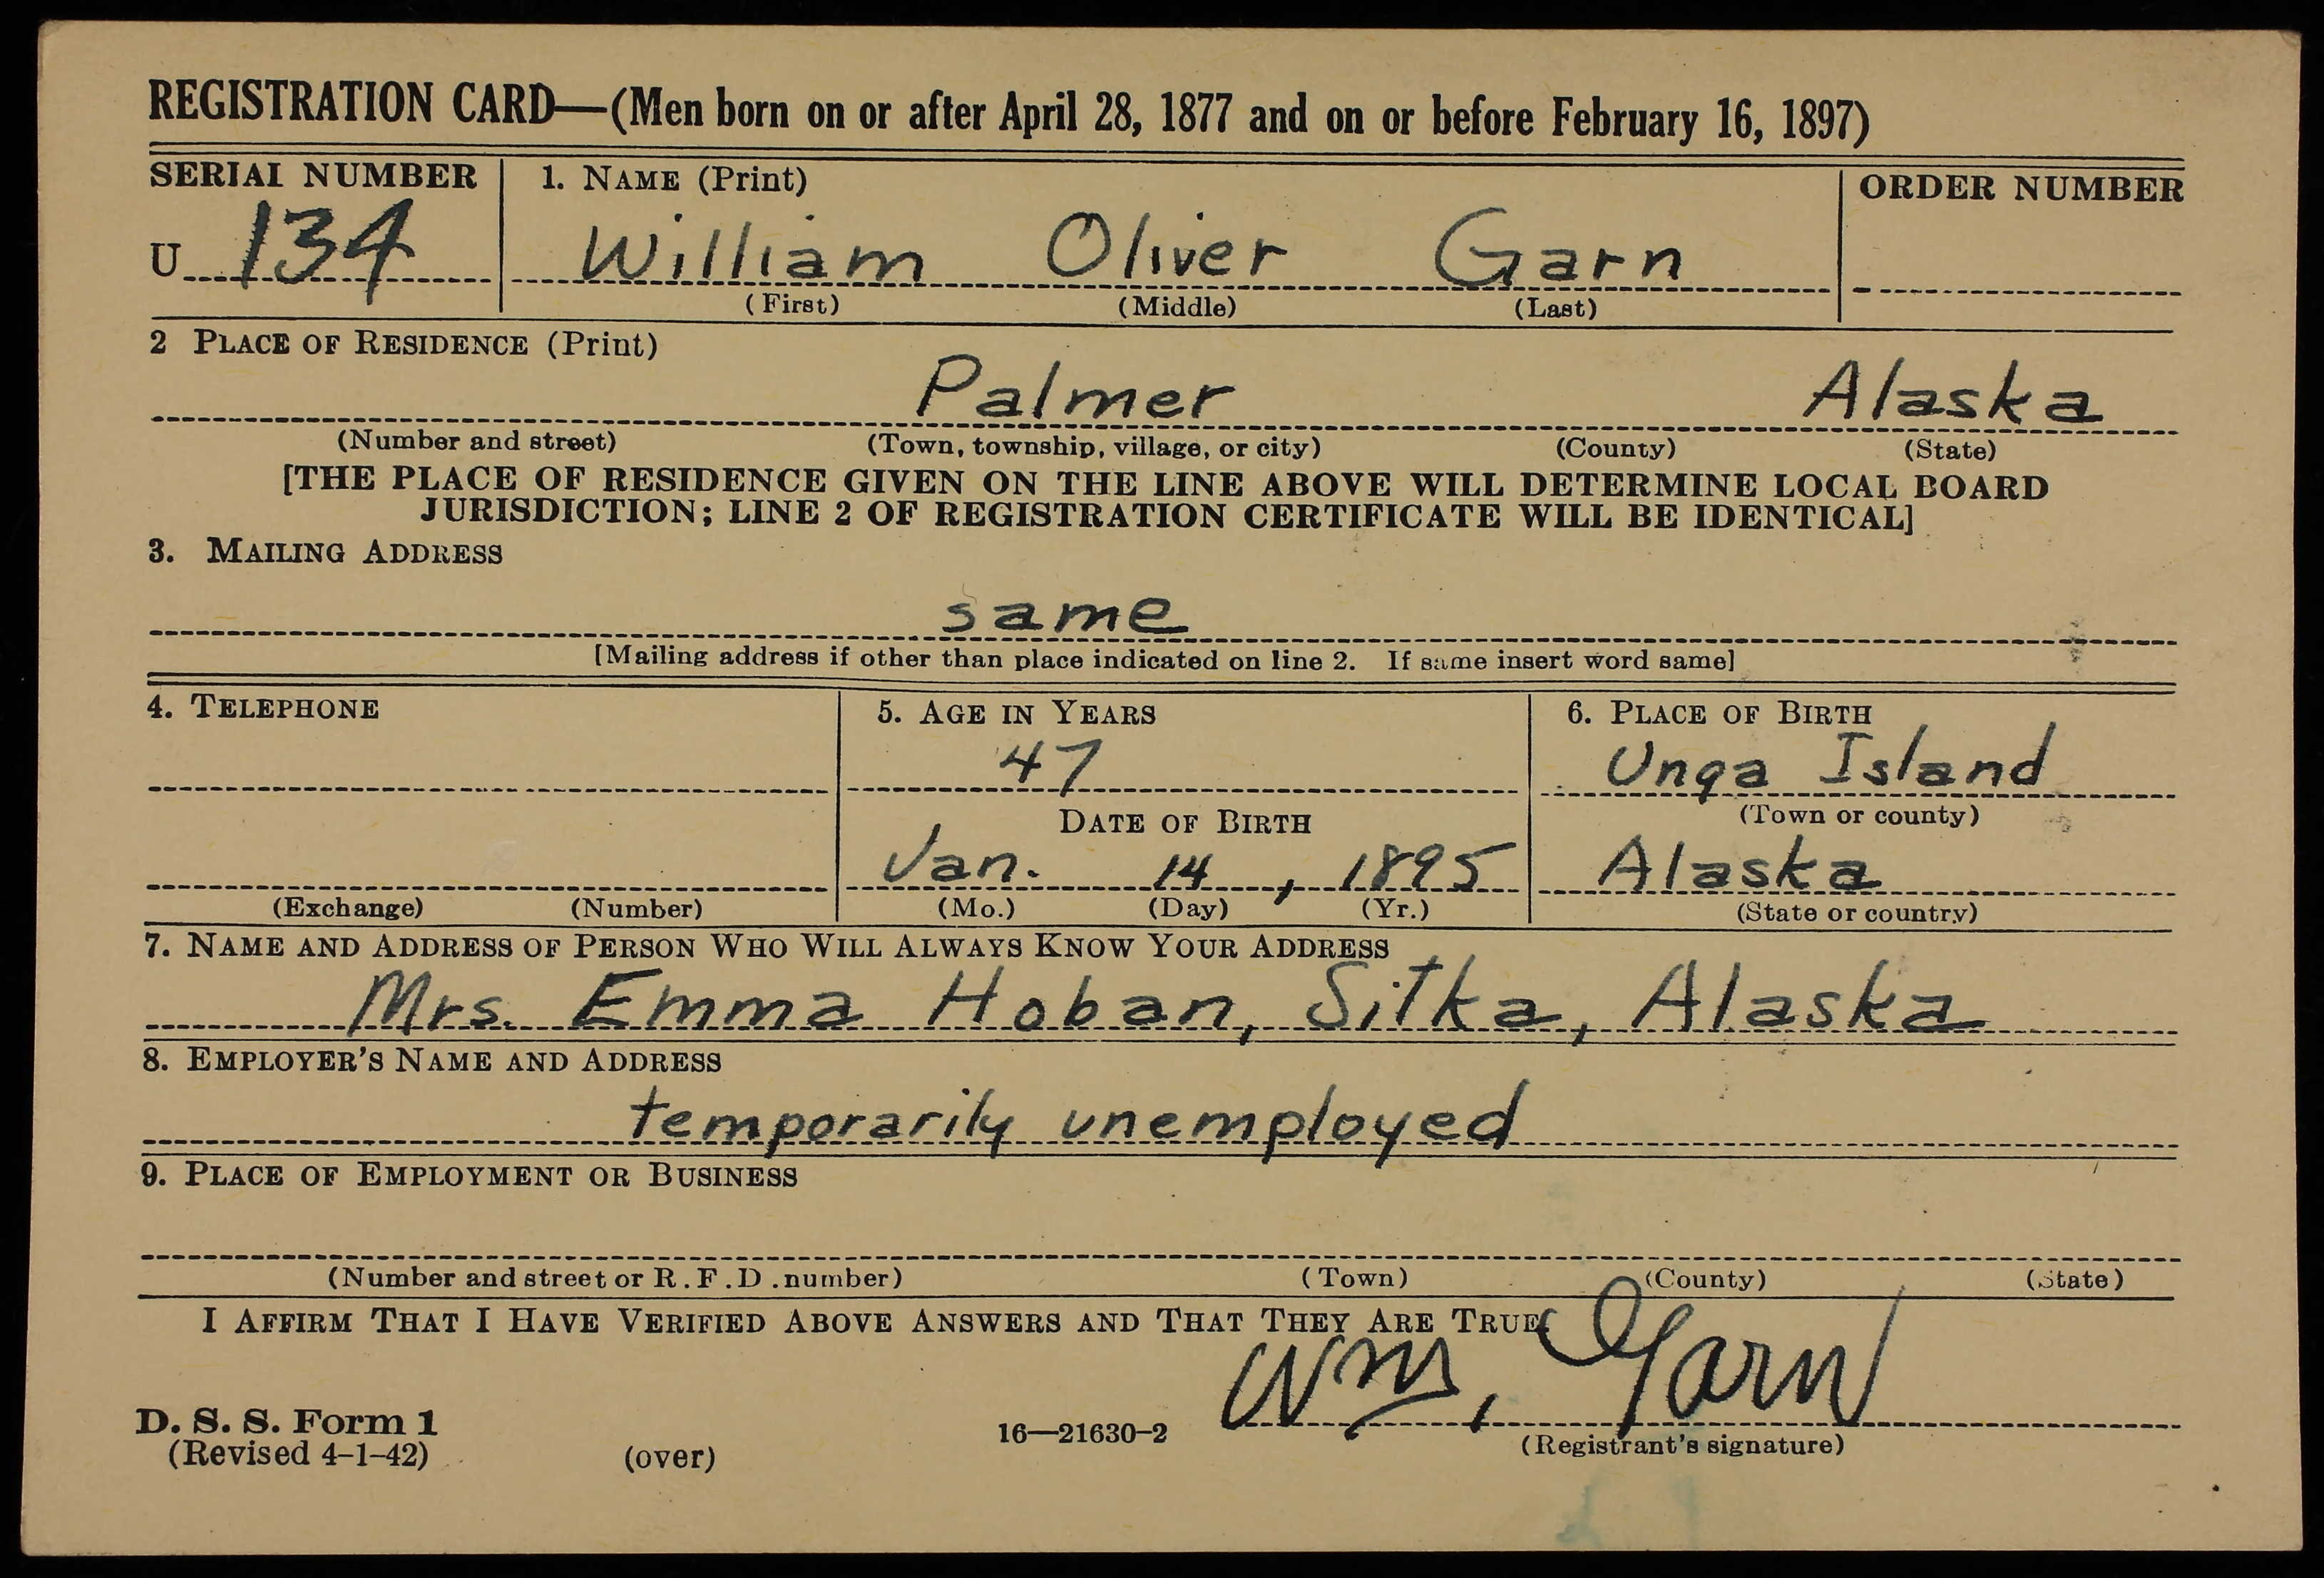 REGISTRATION CARD—(Men born on or after April 28, 1877 and on or before February 16, 1897)
SERIAL NUMBER 1. NAME (Print) ORDER NUMBER
U 134 William Oliver Garn
(First) (Middle) (Last)
2 PLACE OF RESIDENCE (Print)
Palmer Alaska
(Number and street) (Town, township, village, or city) (County) (State)
[THE PLACE OF RESIDENCE GIVEN ON THE LINE ABOVE WILL DETERMINE LOCAL BOARD
JURISDICTION; LINE 2 OF REGISTRATION CERTIFICATE WILL BE IDENTICAL]
3. MAILING ADDRESS
same
[Mailing address if other than place indicated on line 2. If same insert word same]
4. TELEPHONE 5. AGE IN YEARS 6. PLACE OF BIRTH
47 Unga Island
DATE OF BIRTH (Town or county)
Jan. 14, 1895 Alaska
(Exchange) (Number) (Mo.) (Day) (Yr.) (State or country)
7. NAME AND ADDRESS OF PERSON WHO WILL ALWAYS KNOW YOUR ADDRESS
Mrs. Emma Hoban, Sitka, Alaska
8. EMPLOYER'S NAME AND ADDRESS
temporarily unemployed
9. PLACE OF EMPLOYMENT OR BUSINESS
(Number and street or R.F.D. number) (Town) (County) (State)
I AFFIRM THAT I HAVE VERIFIED ABOVE ANSWERS AND THAT THEY ARE TRUE.
Wm, Garn
D. S. S. Form 1
(Revised 4-1-42) (over) 16—21630-2 (Registrant's signature)